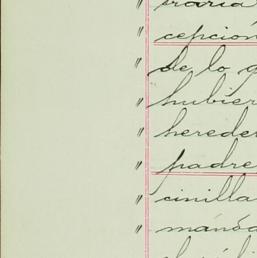 "raria
" cepción
" de lo q
" hubier
" hereder
" padre
" cinilla
" manda